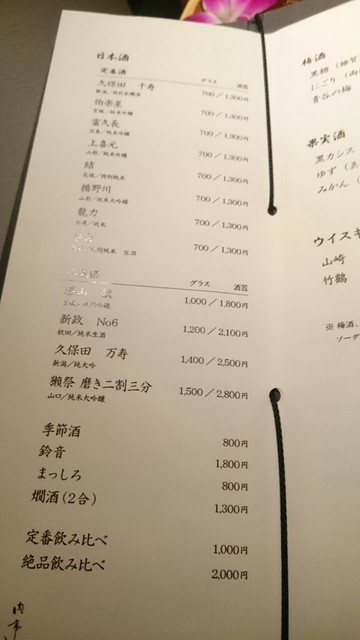 日本酒
定番酒 グラス 酒器
久保田 千寿 700／1,300円
新潟／特別本醸造
伯楽星 700／1,300円
宮城／純米吟醸
富久長 700／1,300円
広島／純米吟醸
上喜元 700／1,300円
山形／純米吟醸
結 700／1,300円
茨城／特別純米
楯野川 700／1,300円
山形／純米大吟醸
龍力 700／1,300円
兵庫／純米
700／1,300円
純米 生酒
グラス 酒器
1,000／1,800円
新政 No6 1,200／2,100円
秋田／純米生酒
久保田 万寿 1,400／2,500円
新潟／純大吟
獺祭 磨き二割三分 1,500／2,800円
山口／純米大吟醸
季節酒 800円
鈴音 1,800円
まっしろ 800円
燗酒（2合） 1,300円
定番飲み比べ 1,000円
絶品飲み比べ 2,000円
内
梅酒
黒糖
にごり
青谷の梅
果実酒
黒カシス
ゆず
みかん
ウイスキ
山崎
竹鶴
※ 梅酒、
ソーダ